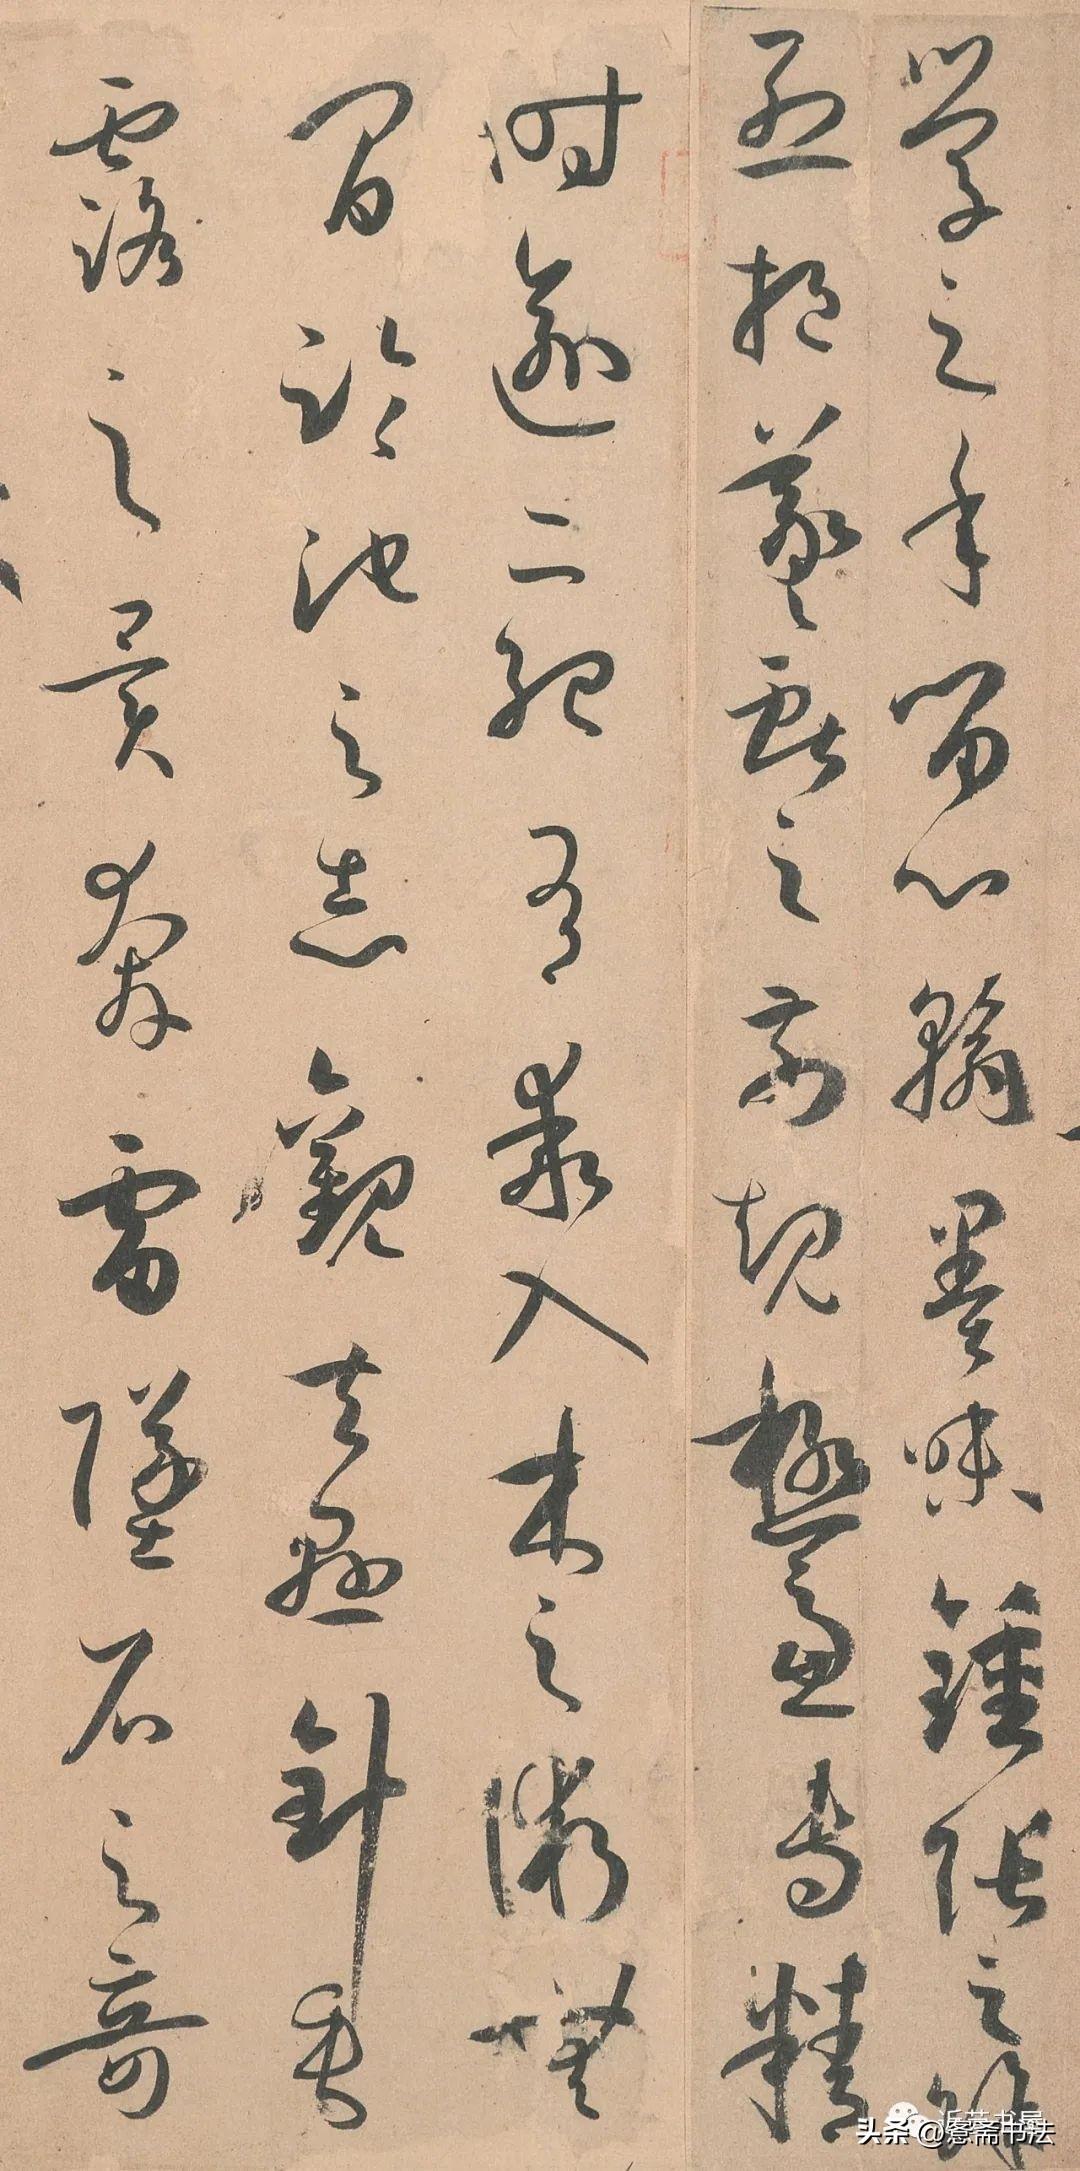 學之年留心翰墨味鍾張之餘
烈挹羲獻之前規極慮專精
時逾二紀有乖入木之術無
間臨池之志觀夫懸針垂
露之異奔雷墜石之奇
头条 @憨斋书法